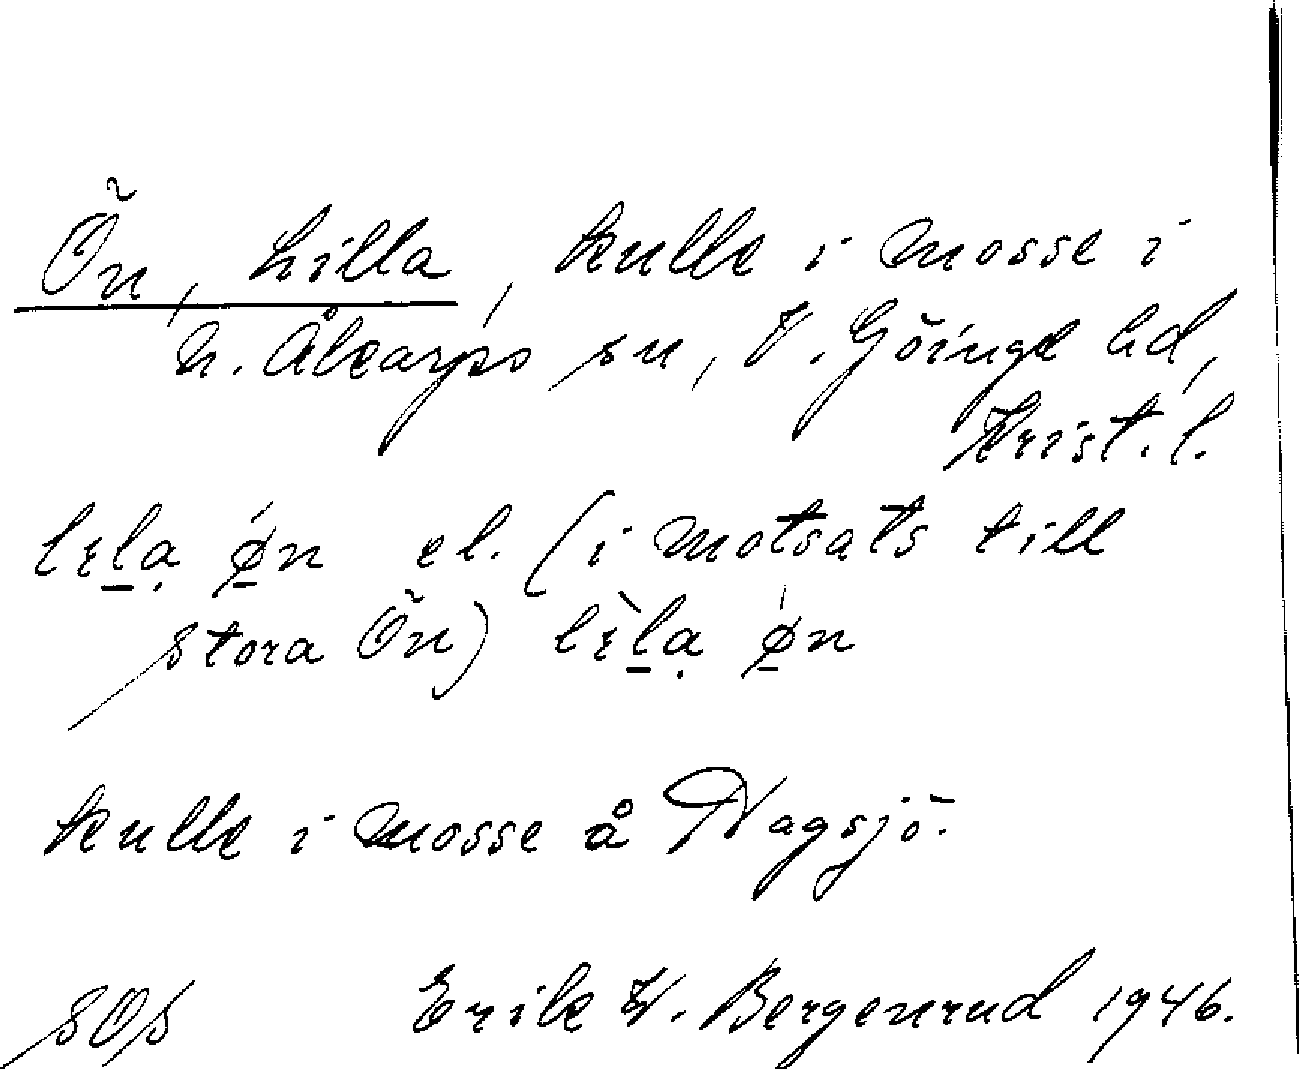 Ön, Lilla, kulle i mosse i
N. Åkarps sn, V. Göinge hd,
Krist. l.
el. (i motsats till
stora Ön)
kulle i mosse å Nagsjö.
SOS Erik W. Bergenrud 1946.